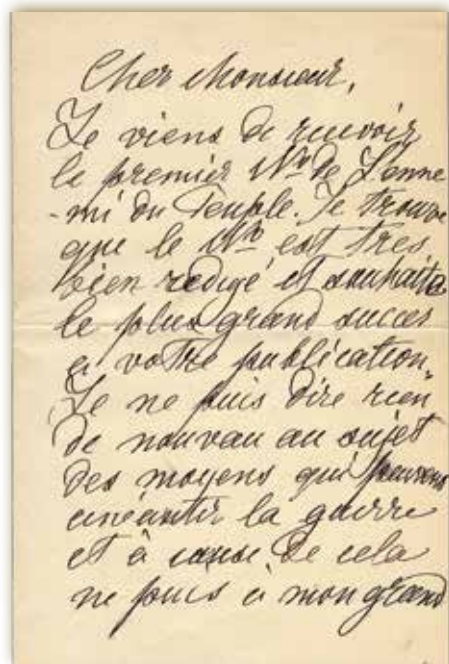 Cher Monsieur,
Je viens de recevoir
le premier No de L'enne
-mi du Peuple. Je trouve
que le No est tres
bien redigé et souhaite
le plus grand succes
a votre publication.
Je ne puis dire rien
de nouvau au sujet
des moyens qui peuvent
anéantir la guerre
et à cause de cela
ne puis à mon grand